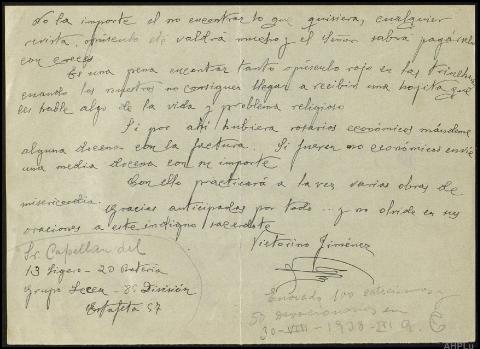 No la importe el no encontrar lo que quisiera, cualquier
revista, opúsculo etc valdrá mucho y el Señor sabrá pagárselo
con creces
Es una pena encontrar tanto opúsculo rojo en las trincheras
cuando los nuestros no consiguen llegar a recibir una hojita que
les hable algo de la vida y problema religioso
Si por ahí hubiera rosarios económicos mándeme
alguna docena con la factura. Si fueren no económicos envie
una media docena con su importe
Con ello practicará a la vez varias obras de
misericordia.
Gracias anticipadas por todo... y no olvide en sus
oraciones a este indigno sacerdote
Victorino Jiménez
Sr. Capellan del
13 Ligero - 20 Bateria
Grupo - 85 División
Estafeta 57
Enviado 100
50 devocionarios en
30-VIII-1938-III
AHPLu